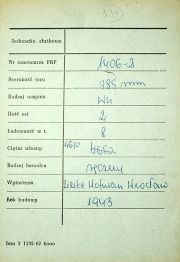 Jednostka służbowa
Nr inwentarza PKP 1406-2
Szerokość toru 785 mm
Rodzaj wagonu Wu
Ilość osi 2
Ładowność w t. 8
Ciężar własny 4630 4660
Rodzaj hamulca ręczny
Wytwórnia Linke Hofman Wrocław
Rok budowy 1943